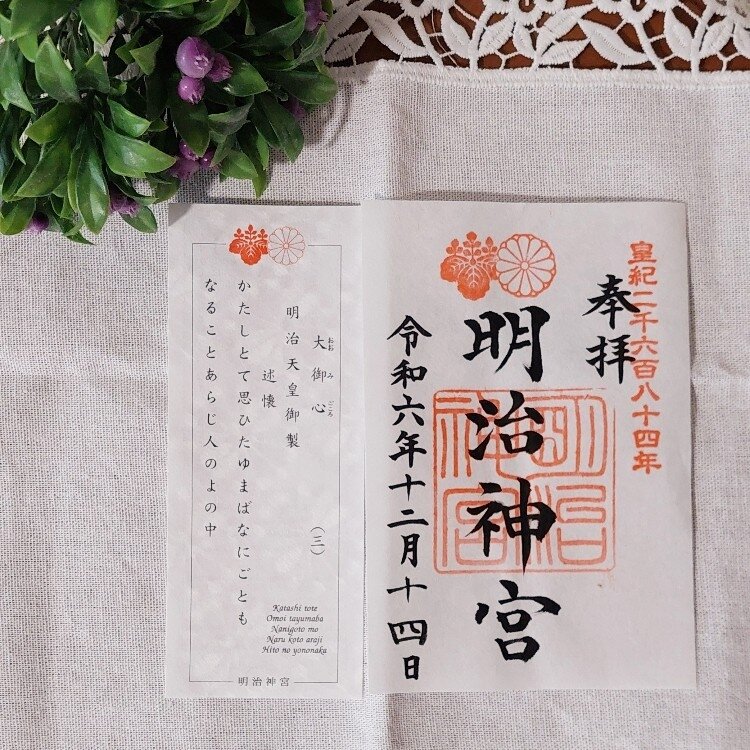 皇紀二千六百八十四年
奉拝
明治神宮
明治神宮
令和六年十二月十四日
大御心
おおみごころ
(三)
明治天皇御製
述懐
かたしとて思ひたゆまばなにごとも
なることあらじ人のよの中
Katashi tote
Omoi tayumaba
Nanigoto mo
Naru koto araji
Hito no yononaka
明治神宮